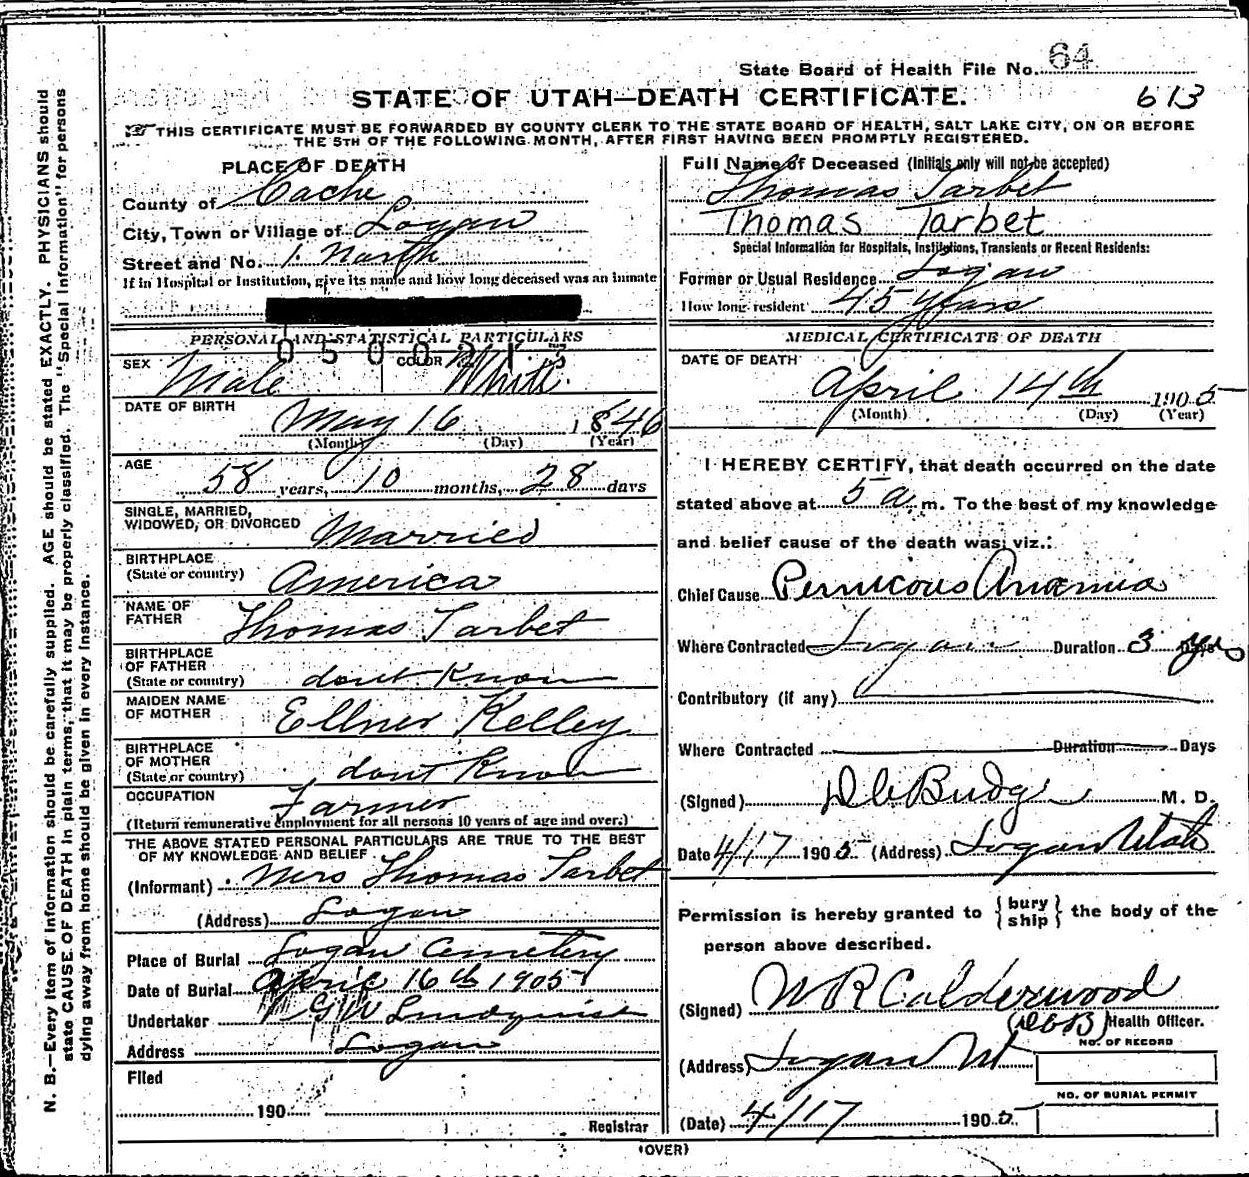 State Board of Health File No. 64
STATE OF UTAH—DEATH CERTIFICATE. 613
THIS CERTIFICATE MUST BE FORWARDED BY COUNTY CLERK TO THE STATE BOARD OF HEALTH, SALT LAKE CITY, ON OR BEFORE
THE 5TH OF THE FOLLOWING MONTH, AFTER FIRST HAVING BEEN PROMPTLY REGISTERED.
PLACE OF DEATH
County of Cache
City, Town or Village of Logan
Street and No. 1. North
If in Hospital or Institution, give its name and how long deceased was an inmate
PERSONAL AND STATISTICAL PARTICULARS
SEX Male COLOR White.
DATE OF BIRTH May 16 1846
(Month) (Day) (Year)
AGE 58 years, 10 months, 28 days
SINGLE, MARRIED,
WIDOWED, OR DIVORCED Married
BIRTHPLACE
(State or country) America
NAME OF
FATHER Thomas Tarbet
BIRTHPLACE
OF FATHER
(State or country) dont Know
MAIDEN NAME
OF MOTHER Ellner Kelley
BIRTHPLACE
OF MOTHER
(State or country) dont Know
OCCUPATION Farmer
(Return remunerative employment for all persons 10 years of age and over.)
THE ABOVE STATED PERSONAL PARTICULARS ARE TRUE TO THE BEST
OF MY KNOWLEDGE AND BELIEF.
(Informant) Mrs Thomas Tarbet
(Address) Logan
Place of Burial Logan Cemetery
Date of Burial April 16th 1905
Undertaker G W Lindquist
Address Logan
Filed
190
Registrar
Full Name of Deceased (Initials only will not be accepted)
Thomas Tarbet
Thomas Tarbet
Special Information for Hospitals, Institutions, Transients or Recent Residents:
Former or Usual Residence Logan
How long resident 45 years
MEDICAL CERTIFICATE OF DEATH
DATE OF DEATH
April 14th 1905
(Month) (Day) (Year)
I HEREBY CERTIFY, that death occurred on the date
stated above at 5 a. m. To the best of my knowledge
and belief cause of the death was, viz.:
Chief Cause Pernicous Anæmia
Where Contracted Logan Duration 3 yrs
Contributory (if any)
Where Contracted Duration Days
(Signed) D C Budge M. D.
Date 4/17 1905 (Address) Logan Utah
Permission is hereby granted to {bury
ship} the body of the
person above described.
(Signed) W R Calderwood
(DCB) Health Officer.
(Address) Logan Ut
NO. OF RECORD
NO. OF BURIAL PERMIT
(Date) 4/17 1905
(OVER)
N. B.—Every item of information should be carefully supplied. AGE should be stated EXACTLY. PHYSICIANS should
state CAUSE OF DEATH in plain terms, that it may be properly classified. The "Special Information" for persons
dying away from home should be given in every instance.